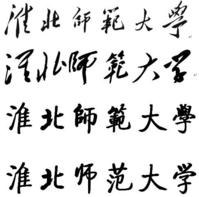 淮北師範大學
淮北师範大学
淮北師範大學
淮北师范大学